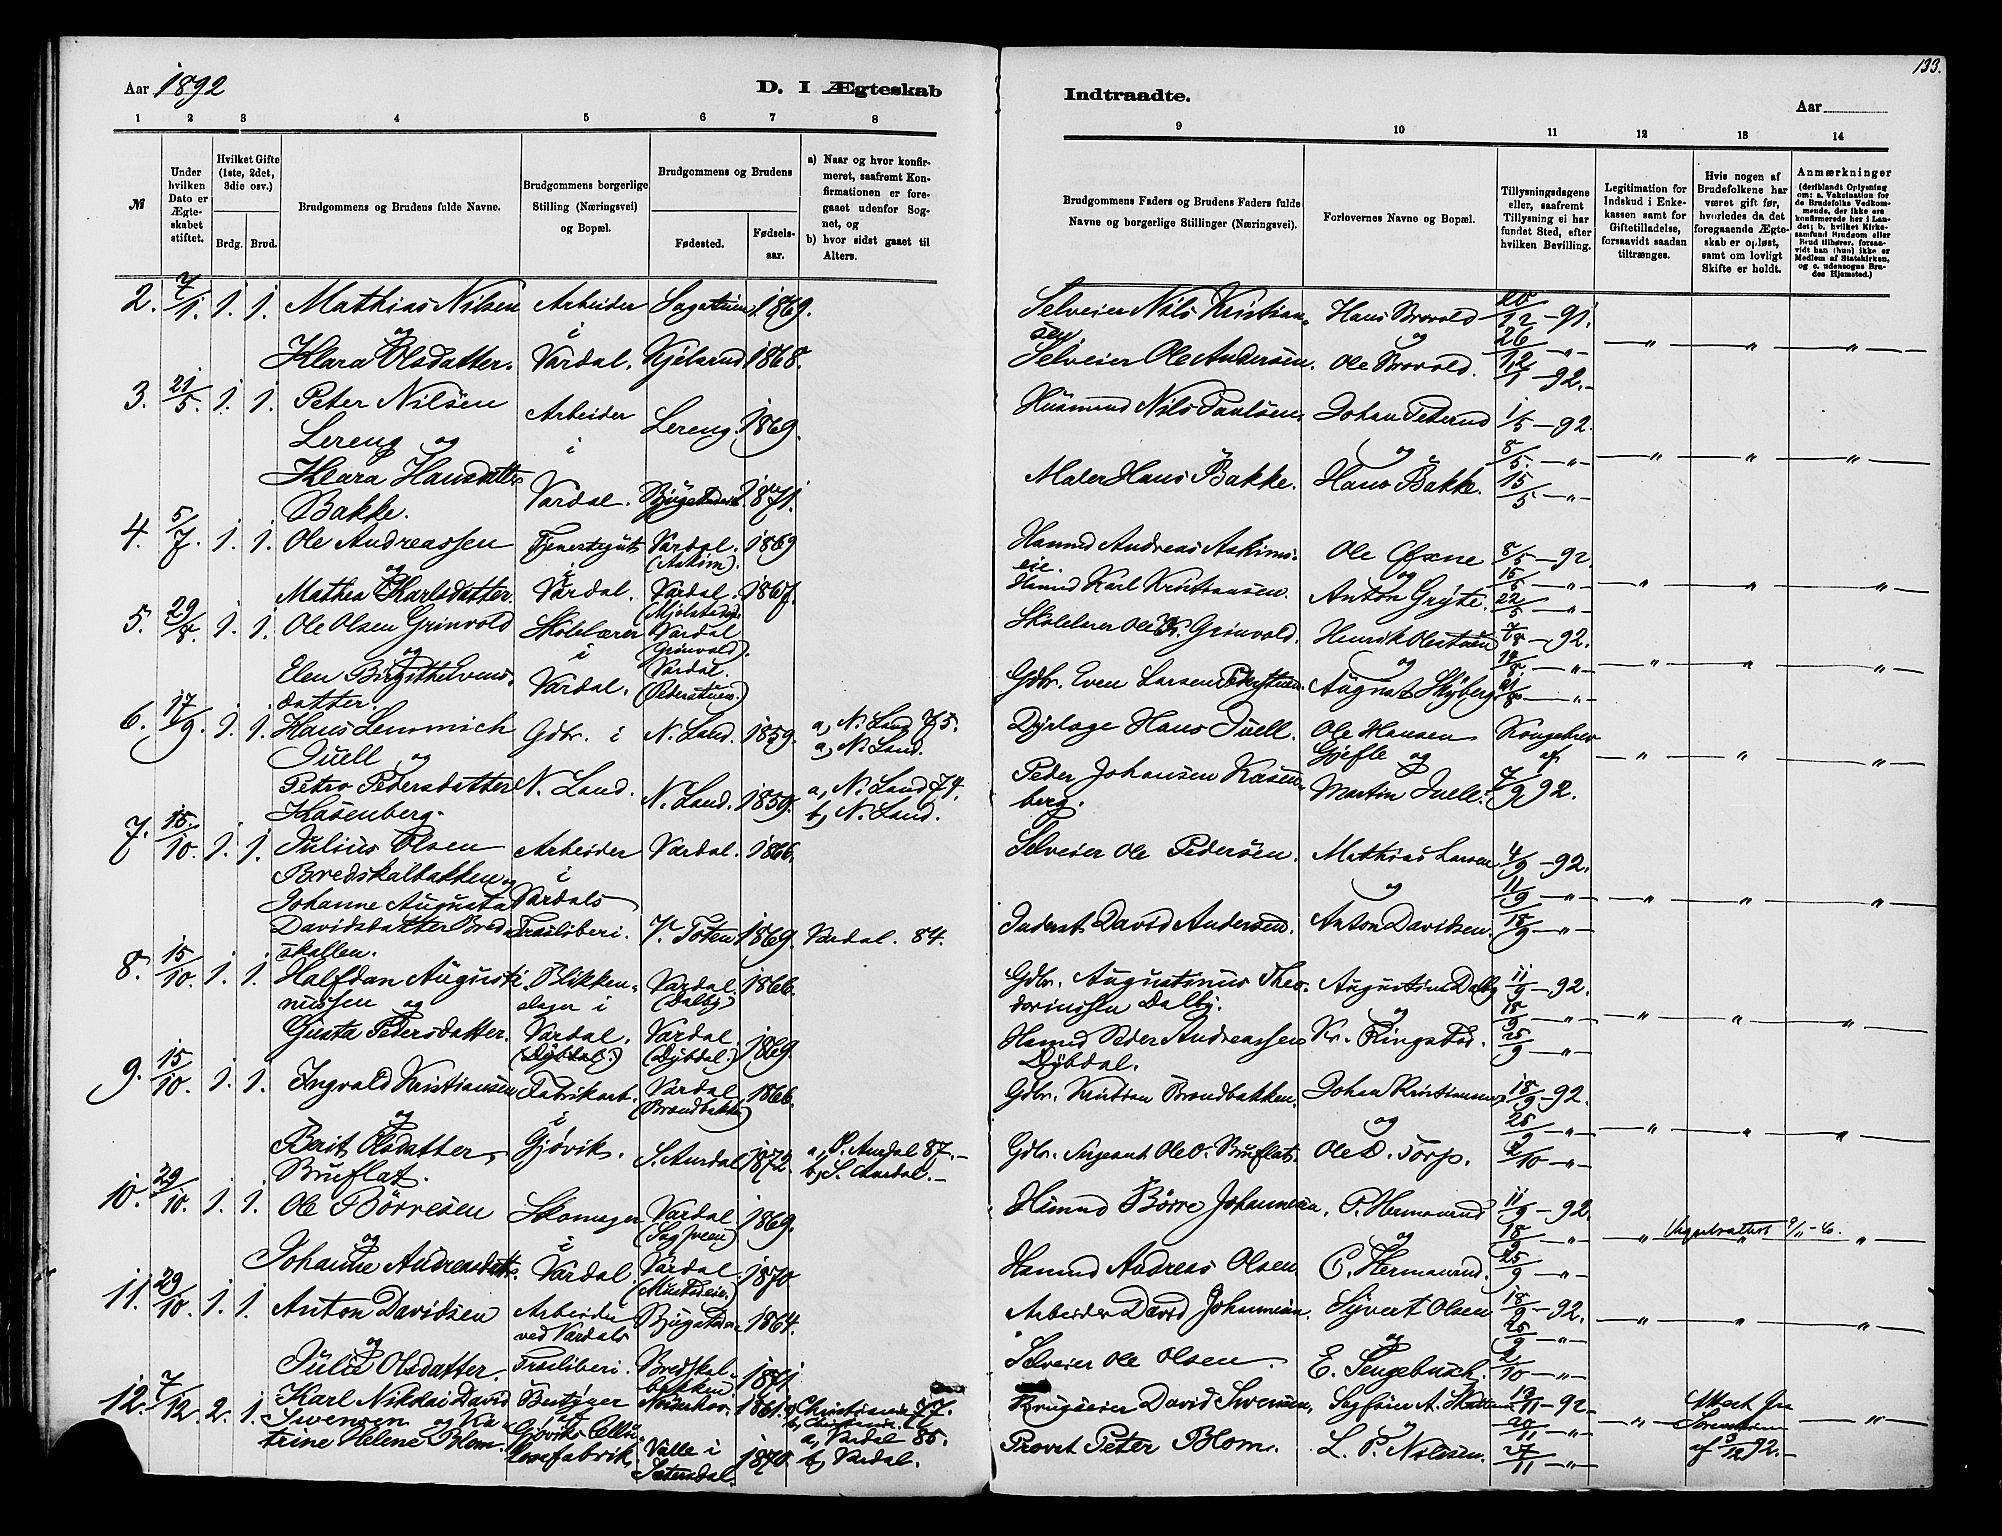 133.
Aar 1892
D. I Ægteskab
Indtraadte.
Aar
1 2 3 4 5 6 7 8
9 10 11 12 13 14
№
Under hvilken Dato er Ægteskabet stiftet.
Hvilket Gifte (1ste, 2det, 3die osv.)
Brdg. Brud.
Brudgommens og Brudens fulde Navne.
Brudgommens borgerlige Stilling (Næringsvei) og Bopæl.
Brudgommens og Brudens
Fødested.
Fødselsaar.
a) Naar og hvor konfirmeret, saafremt Konfirmationen er foregaaet udenfor Sognet, og
b) hvor sidst gaaet til Alters.
Brudgommens Faders og Brudens Faders fulde Navne og borgerlige Stillinger (Næringsvei).
Forlovernes Navne og Bopæl.
Tillysningsdagene eller, saafremt Tillysning ei har fundet Sted, efter hvilken Bevilling.
Legitimation for Indskud i Enkekassen samt for Giftetilladelse, forsaavidt saadan tiltrænges.
Hvis nogen af Brudefolkene har været gift før, hvorledes da det foregaaende Ægteskab er opløst, samt om lovligt Skifte er holdt.
Anmærkninger
(deriblandt Oplysning om: a. Vakcination for de Brudefolks Vedkommende, der ikke ere konfirmerede her i Landet; b. hvilket Kirkesamfund Brudgom eller Brud tilhører, forsaavidt han (hun) ikke er Medlem af Statskirken, og c. udensogns Brudes Hjemsted.)
2. 7/1. 1. 1. Mathias Nilsen Arbeider 1869. Selveier Nils Kristiansen Hans Brovold 20/12 - 91.
og i og 26/12 - „ -
Klara Olsdatter. Vardal. Kjelsrud 1868. Selveier Ole Andersen. Ole Brovold. 1/1 - 92.
3. 21/5. 1. 1. Peter Nilsen Arbeider Lereng. 1869. Husmand Nils Paulsen. Johan Peterud 1/5 - 92.
Lereng og i og 8/5. - „ -
Klara Hansdatter Vardal. 1871. Maler Hans Bakke. Hans Bakke. 15/5 - „ -
Bakke.
4. 5/7. 1. 1. Ole Andreassen Tjenestegut Vardal. (Askim). 1869 Husmd Andreas Askimseie. Ole 8/5 - 92.
og i og 15/5 - „ -
Mathea Karlsdatter. Vardal. Vardal. 1867. Husmd Karl Kristiansen. Anton Gryte. 22/5 - „ -
5. 29/8. 1. 1. Ole Olsen Grinvold Skolelærer Vardal (Grinvold). Skolelærer Ole Grinvold. Henrik 7/8 - 92.
og i og 14/8 - „ -
Elen Birgithe Evensdatter. Vardal. Vardal. (Pederstuen.) Gdbr. Even Larsen Pederstuen. August Skyberg. 21/8 - „ -
6. 17/9. 1. 1. Hans Lemmich Gdbr. i N. Land. 1859. a, N. Land 75. Dyrlæge Hans Juell. Ole Hansen Kongebrev
Juell og a, N. Land. Gjefle og af
Petra Pedersdatter N. Land. N. Land. 1859. a, N. Land 74. Peder Johansen Kasenberg. Martin Juell. 7/9 92.
Kasenberg. b, N. Land.
7. 15/10. 1. 1. Julius Olsen Arbeider Vardal. 1866. Selveier Ole Pedersen. Mathias Larsen 4/9 - 92.
Bredskalbakken og i og 11/9 - „ -
Johanne Augusta Vardals
Davidsdatter Bredskallen. Træsliberi. V. Toten 1869. Vardal. 84. Inderst David Andersen. Anton Davidsen. 18/9 - „ -
8. 15/10. 1. 1. Halfdan Augustinussen og Blikkenslager i Vardal. (Dalby) 1866. Gdbr. Augustinus Theodorinssen Dalby. Augustinus Dalby 11/9 - 92.
og 18/9 - „ -
Gusta Pedersdatter. Vardal. (Dybdal.) Vardal. (Dybdal.) 1869. Husmd Peder Andreassen Dybdal. Kr. Ringstad. 25/9 - „ -
9. 15/10. 1. 1. Ingvald Kristiansen Fabrikarb. Vardal. (Brandbakken) 1866. Gdbr. Kristian Brandbakken. Johan Kristiansen 18/9 - 92.
og i og 25/9 - „ -
Berit Olsdatter Gjøvik. S. Aurdal 1872. a, S. Aurdal 87. - Gdbr. Sergeant Ole O. Bruflat. Ole D. Torp. 2/10 - „ -
Bruflat. b, S. Aurdal. -
10. 29/10. 1. 1. Ole Børresen Skomager Vardal 1869. Husmd Børre Johannesen. P. Hermanrud 11/9 - 92.
og i og 18/9 - „ - 9/11 - 6.
Johanne Andreasdatter. Vardal. Vardal. 1870. Husmd Andreas Olsen. C. Hermanrud. 25/9 - „ -
11. 29/10. 1. 1. Anton Davidsen Arbeider 1864. Arbeider David Johannesen. Syvert Olsen 18/9 - 92.
og ved Vardals og 25/9 - „ -
Julie Olsdatter. Træsliberi. Bredskalbakken 1871. Selveier Ole Olsen. E. Sengebusch. 2/10 - „ -
12. 7/12. 2. 1. Karl Nikolai David Bestyrer 1861. a, Christiania 77. Brugseier David Svensen, 13/11 - 92.
Svensen og Katrine Helene Blom. af Gjøviks Cellulosefabrik. b, Christiania a, Vardal 85. og 20/11 - „ -
Valle i Sætersdal. 1870. b, Vardal. Provst Peter Blom. L. P. Nilssen. 27/11 - „ - Attest fra af 3/12 92. -